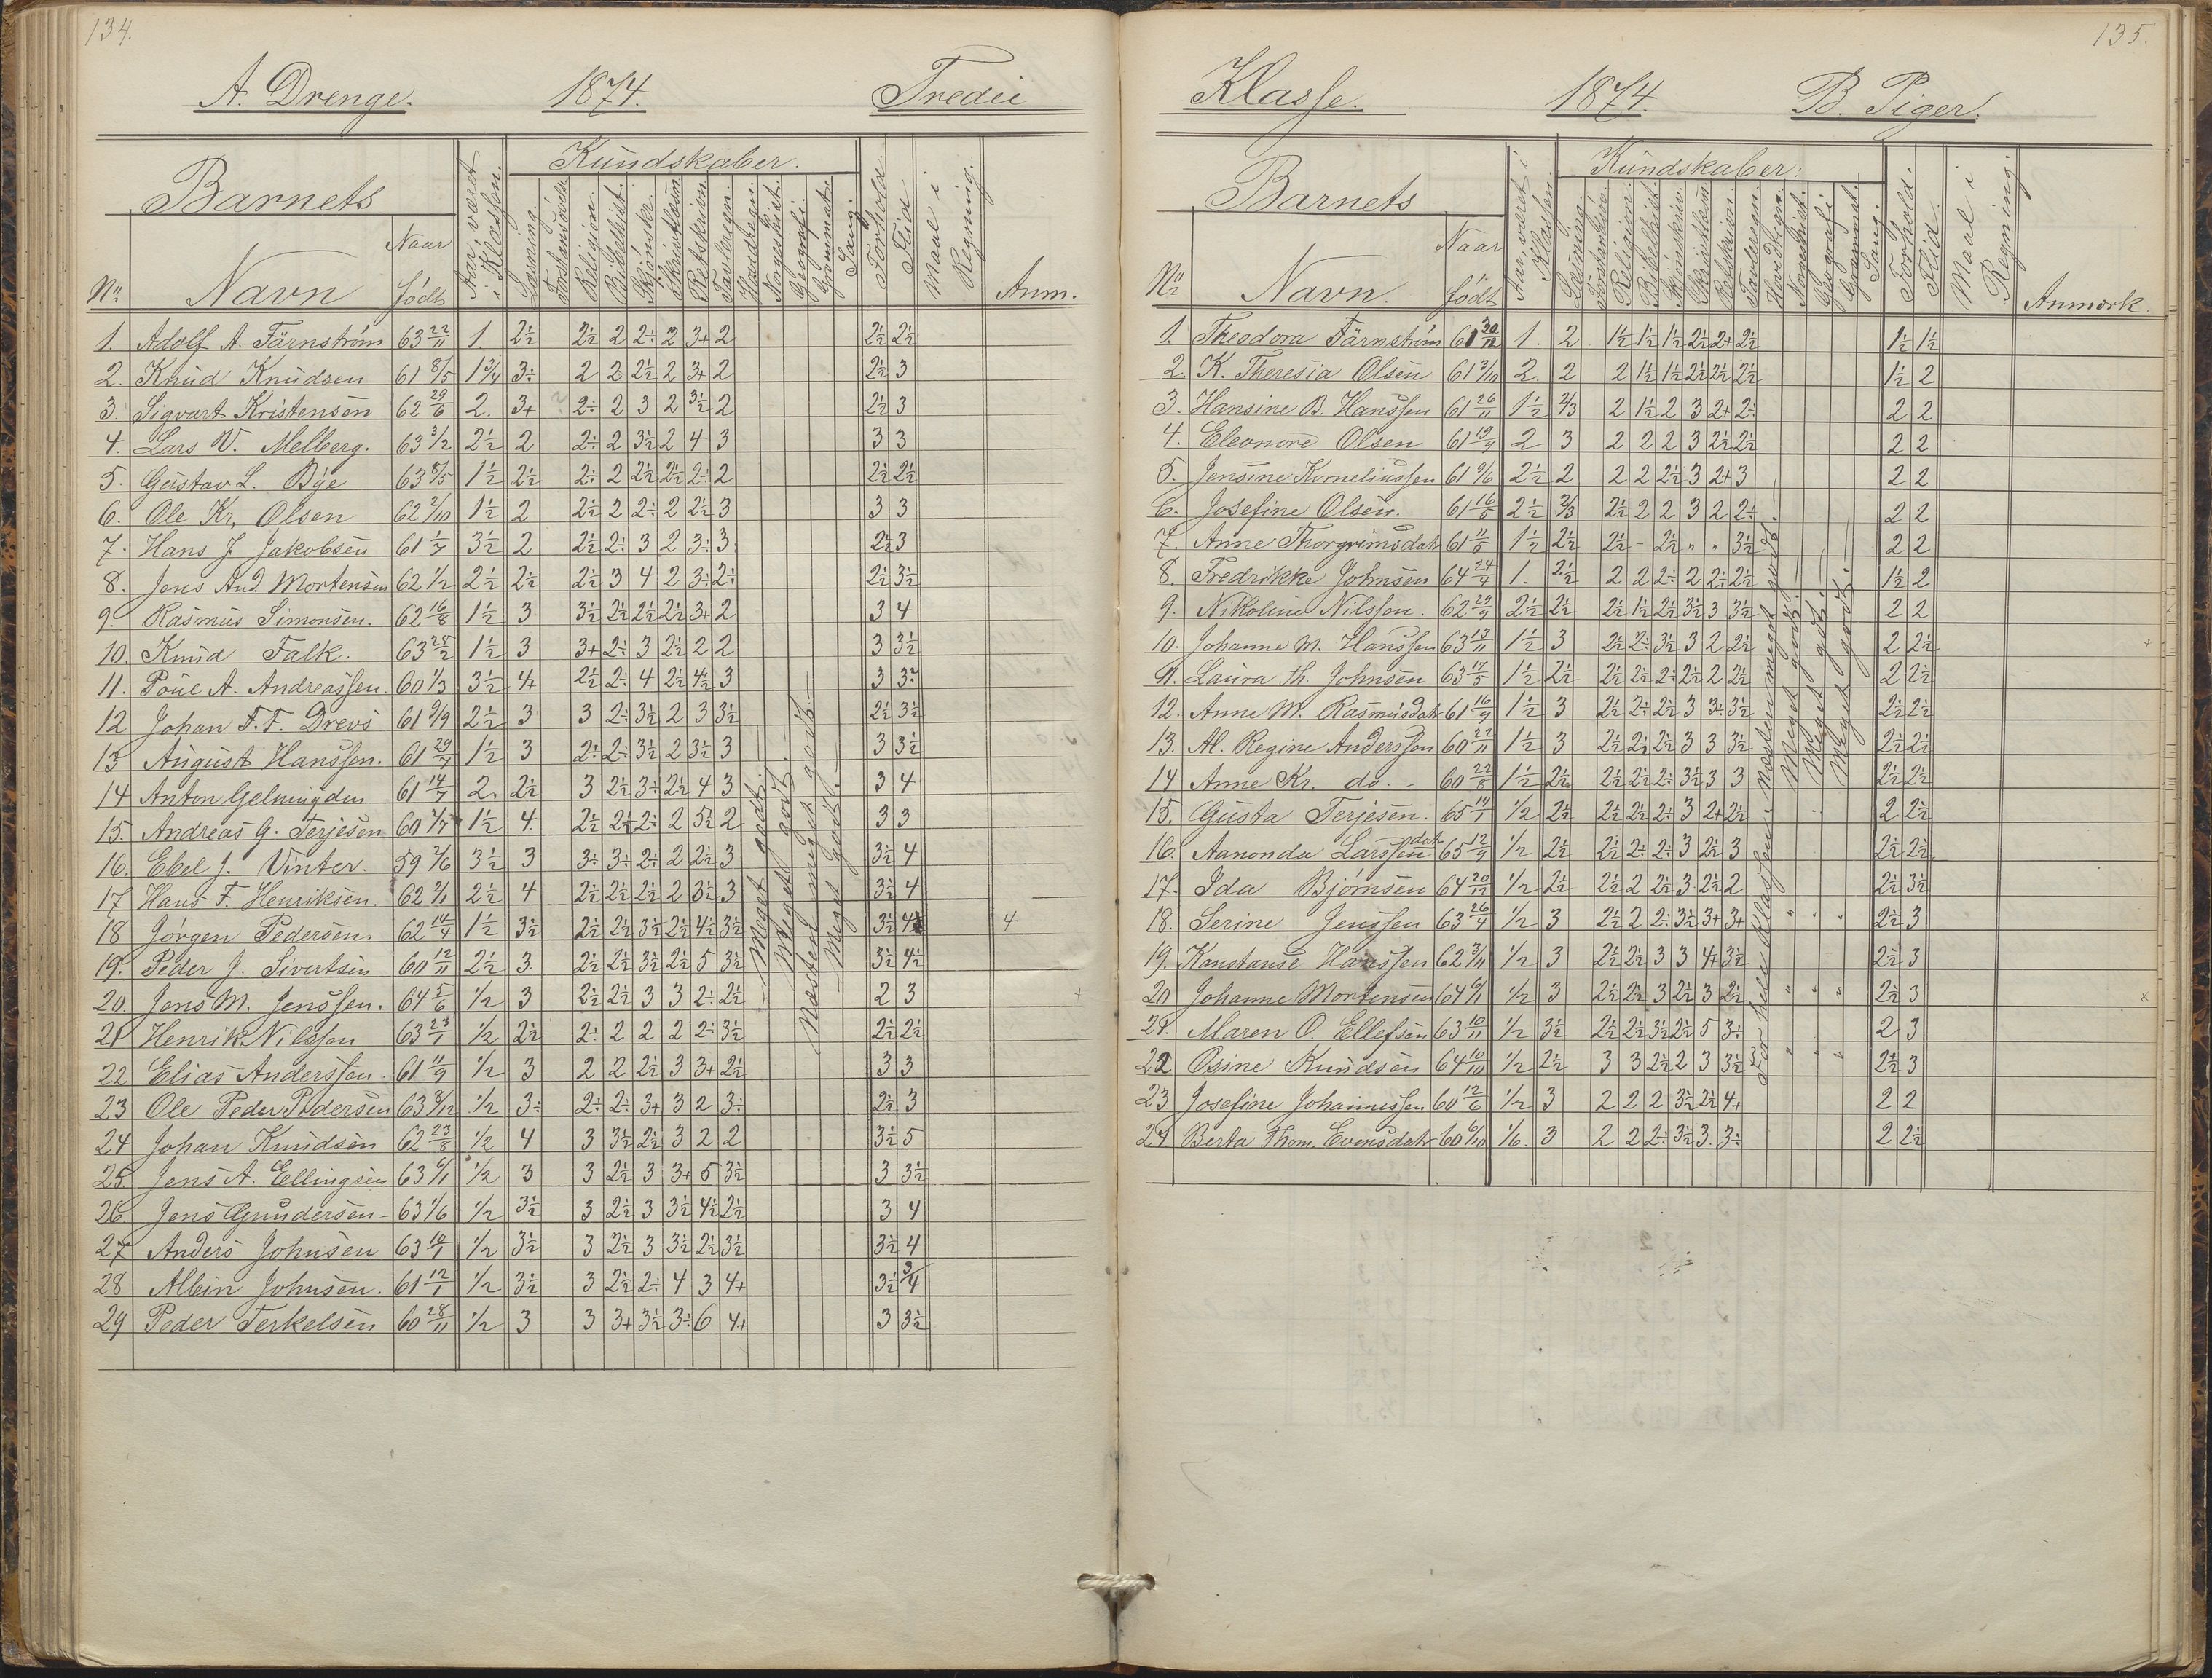 134.
A. Drenge. 1874. Tredie
Barnets
Aar, været i Klassen.
Kundskaber.
Forhold.
Flid
Maal i Regning.
Nr. Navn Naar født Læsning. Religion. Bibelhist. Skjönskr. Retskrivn. Tavleregn. Hovedregn. Norgeshist. Geografi. Grammat. Sang. Anm.
1. Adolf A. Färnström 63 22/11 1. 2½ 2½ 2 2÷ 2 3+ 2 2½ 2½
2. Knud Knudsen 61 8/5 1¾ 3÷ 2 2 2½ 2 3+ 2 2½ 3
3. Sigvart Kristensen 62 29/6 2. 3+ 2÷ 2 3 2 3½ 2 2½ 3
4. Lars W. Melberg. 63 3/12 2½ 2 2÷ 2 3½ 2 4 3 3 3
5. Gustav L. Bye 63 8/5 1½ 2½ 2÷ 2 2½ 2½ 2÷ 2 2½ 2½
6. Ole Kr. Olsen 62 2/10 1½ 2 2½ 2 2÷ 2 2½ 3 3 3
7. Hans J. Jakobsen 61 1/7 3½ 2 2½ 2÷ 3 2 3÷ 3 2½ 3
8. Jens And. Mortensen 62 1/2 2½ 2½ 2½ 3 4 2 3÷ 2÷ 2½ 3½
9. Rasmus Simonsen. 62 16/8 1½ 3 3½ 2½ 2½ 2½ 3+ 2 3 4
10. Knud Falk. 63 25/2 1½ 3 3+ 2÷ 3 2½ 2 2 3 3½
11. Poul A. Andreassen. 60 1/3 3½ 4+ 2½ 2÷ 4 2½ 4½ 3 3 3½
12 Johan F. F. Drevs 61 9/9 2½ 3 3 2÷ 3½ 2 3 3½ 2½ 3½
13 August Hanssen. 61 29/7 1½ 3 2÷ 2÷ 3½ 2 3½ 3 3 3½
14 Anton Gelmuyden 61 14/7 2. 2½ 3 2½ 3÷ 2½ 4 3 3 4
15. Andreas G. Terjesen 60 7/7 1½ 4. 2½ 2½ 2÷ 2 5½ 2 3 3
16. Ebel J. Vinter. 59 2/6 3½ 3 3÷ 3÷ 2÷ 2 2½ 3 3½ 4
17 Hans F. Henriksen. 62 2/11 2½ 4 2½ 2½ 2½ 2 3½ 3 3½ 4
18 Jörgen Pedersen. 62 14/4 1½ 3½ 2½ 2½ 3½ 2½ 4½ 3½ 3½ 4 4
19. Peder J. Sivertsen 60 12/11 2½ 3. 2½ 2½ 3½ 2½ 5 3½ 3½ 4½
20. Jens M. Jenssen. 64 5/6 ½ 3 2½ 2½ 3 3 2÷ 2½ 2 3 +
21 Henrik Nilssen 63 23/1 ½ 2½ 2÷ 2 2 2 2÷ 3½ 2½ 2½
22 Elias Anderssen. 61 11/9 ½ 3 2 2 2½ 3 3+ 2½ 3 3
23 Ole Peder Pedersen 63 8/12 ½ 3÷ 2÷ 2÷ 3+ 3 2 3÷ 2½ 3
24 Johan Knudsen 62 23/8 ½ 4 3 3½ 2½ 3 2 2 3½ 5
25. Jens A. Ellingsen 63 6/1 ½ 3 3 2½ 3 3+ 5 3½ 3 3½
26 Jens Gundersen 63 1/6 ½ 3½ 3 2½ 3 3½ 4½ 2½ 3 4
27 Anders Johnsen 63 10/1 ½ 3½ 3 2½ 3 3½ 2½ 3½ 3½ 4
28 Albin Johnsen. 61 12/1 ½ 3½ 3 2½ 2÷ 4 3 4+ 3½ 3/4
29 Peder Terkelsen 60 28/11 ½ 3 3 3+ 3½ 3÷ 6 4+ 3 3½
Meget godt.
Meget godt.
Næsten meget godt.
Meget godt.
135.
Klasse. 1874. B. Piger.
Barnets
Aar, været i Klassen.
Kundskaber.
Forhold.
Flid.
Maal i Regning.
Nr. Navn. Naar født Læsning. Religion. Bibelhist. Skjönskrivn. Retskrivn. Tavleregn. Hovedregn. Norgeshist. Geografi Grammat. Sang. Anmærk.
1. Theodora Färnström 61 30/12 1. 2 1½ 1½ 1½ 2½ 2+ 2½ 1½ 1½
2. K. Theresia Olsen 61 3/10 2. 2 2 1½ 1½ 2½ 2½ 2½ 1½ 2
3. Hansine B. Hanssen 61 26/11 1½ 2/3 2 1½ 2 3 2+ 2÷ 2 2
4. Eleonore Olsen 61 19/9 2 3 2 2 2 3 2½ 2½ 2 2
5. Jensine Korneliussen 61 9/6 2½ 2 2 2 2½ 3 2+ 3 2 2
6. Josefine Olsen. 61 16/5 2½ 2/3 2½ 2 2 3 2 2÷ 2 2
7. Anne Thorgrimsdatr 61 11/5 1½ 2½ 2½ - 2½ " " 3½ 2 2
8. Fredrikke Johnsen 64 24/4 1. 2½ 2 2 2÷ 2 2÷ 2½ 1½ 2
9. Nikoline Nilssen. 62 29/9 2½ 2½ 2½ 1½ 2½ 3½ 3 3½ 2 2
10. Johanne M. Hanssen 63 13/11 1½ 3 2½ 2÷ 3½ 3 2 2½ 2 2½ +
11. Laura Th. Johnsen 63 17/5 1½ 2½ 2½ 2½ 2÷ 2½ 2 2½ 2 2½
12. Anne M. Rasmusdatr 61 16/9 1½ 3 2½ 2÷ 2½ 3 3÷ 3½ 2½ 2½
13. Al. Regine Anderssen 60 22/11 1½ 3 2½ 2½ 2½ 3 3 3½ 2½ 2½
14 Anne Kr. do. - 60 22/8 1½ 2½ 2½ 2½ 2÷ 3½ 3 3 2½ 2½
15. Gusta Terjesen. 65 14/1 ½ 2½ 2½ 2½ 2÷ 3 2+ 2½ 2 2½
16. Aanonda Larssen datr 65 12/9 ½ 2½ 2½ 2÷ 2÷ 3 2½ 3 2½ 2½
17. Ida Bjornsen 64 20/12 ½ 2½ 2½ 2 2½ 3 2½ 2 2½ 3½
18. Serine Jenssen 63 26/4 ½ 3 2½ 2 2÷ 3½ 3+ 3+ 2½ 3
19. Konstanse Hanssen 62 3/11 ½ 3 2½ 2½ 3 3 4+ 3½ 2½ 3
20 Johanne Mortensen 64 6/1 ½ 3 2½ 2½ 3 2½ 3 2½ 2½ 3 x
21. Maren O. Ellefsen 63 10/11 ½ 3½ 2½ 2½ 3½ 2½ 5 3÷ 2 3
22 Osine Knudsen 64 10/10 ½ 2½ 3 3 2½ 2 3 3½ 2½ 3
23 Josefine Johannessen 60 12/6 ½ 3 2 2 2 3½ 2½ 4+ 2 2
24 Berta Thom. Evensdatr 60 6/10 1/6. 3 2 2 2÷ 3½ 3. 3÷ 2 2½
For hele Klassen: Næsten meget godt.
Meget godt.
Meget godt.
Meget godt.